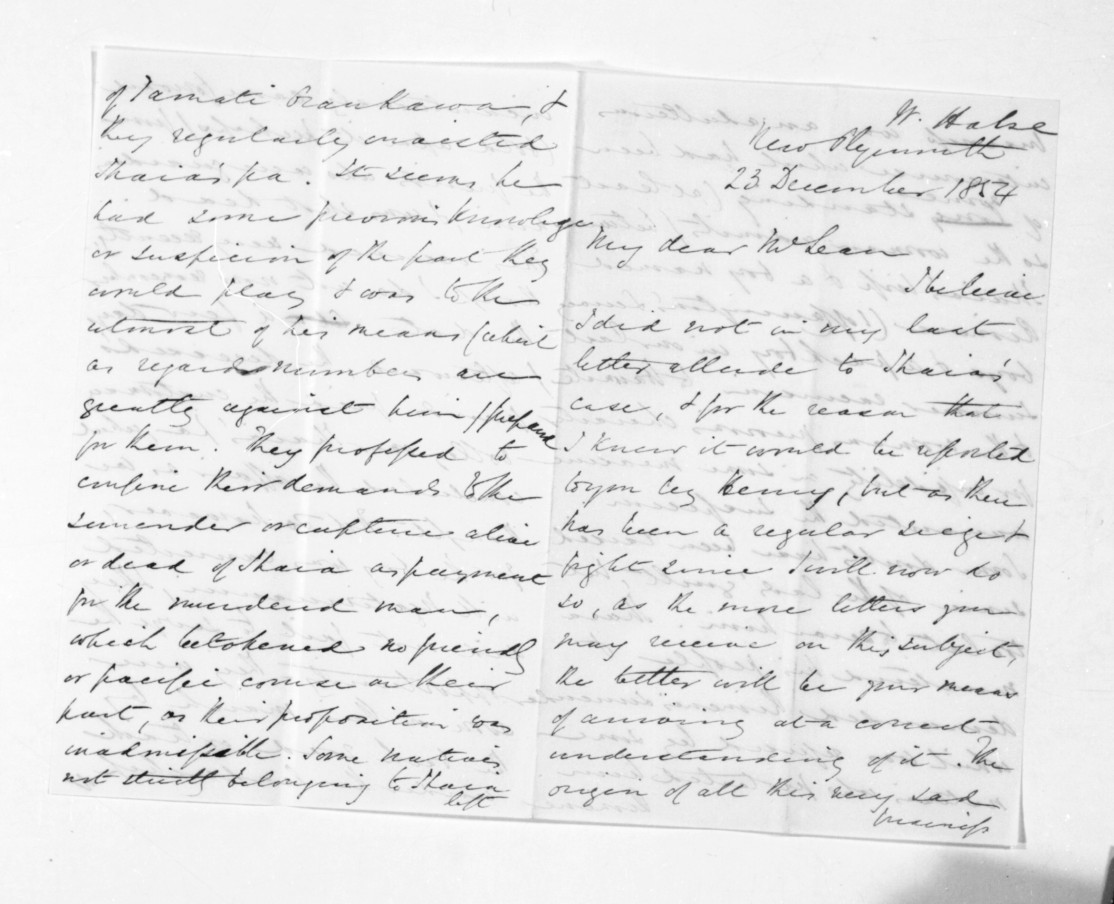 W. Halse
New Plymouth
23 December 1854
My dear McLean
I believe
I did not in my last
letter allude to Ihaia's
case, & for the reason that
I knew it would be reported
to you by Henry, but as there
has been a regular seige &
fight since I will now do
so, as the more letters you
may receive on this subject,
the better will be your means
of arriving at a correct
understanding of it. The
origin of all this very sad
business
of Tamati Oraukawa, &
they regularly invested
Ihaia's pa. It seems he
had some previous knowledge
or suspicion of the part they
would play & was to the
utmost of his means (which
as regards numbers are
greatly against him) prepared
for them. They professed to
confine their demands to the
surrender or capture alive
or dead of Ihaia as payment
for the murdered man,
which betokened no friendly
or pacific course on their
part, as their proposition was
inadmissible. Some natives
not strictly belonging to Ihaia
left